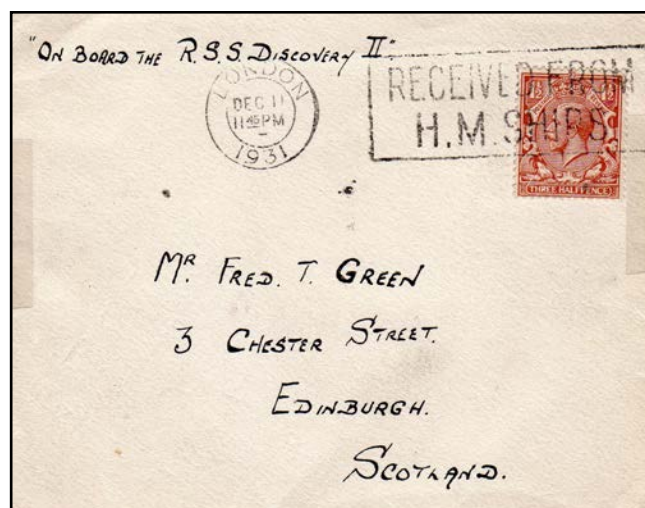 "ON BOARD THE R.S.S. DISCOVERY II"
LONDON
DEC 11
11 45 PM
1931
RECEIVED FROM
H.M. SHIPS
THREE HALFPENCE
MR. FRED. T. GREEN
3 CHESTER STREET.
EDINBURGH.
SCOTLAND.